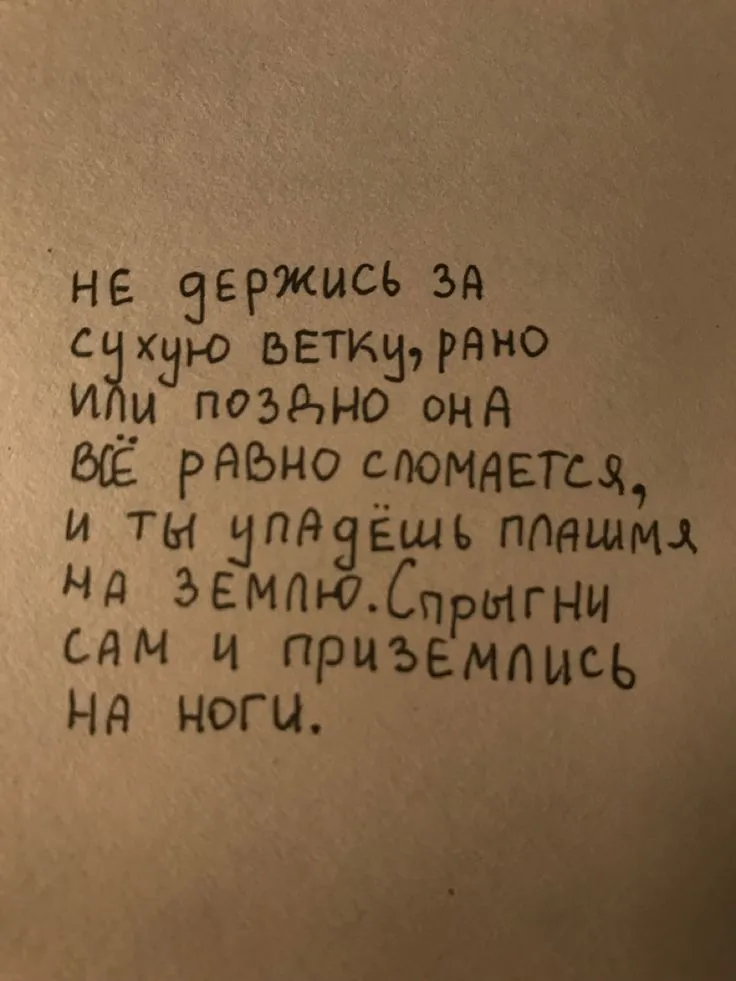 НЕ ДЕРЖИСЬ ЗА
СУХУЮ ВЕТКУ, РАНО
ИЛИ ПОЗДНО ОНА
ВСЁ РАВНО СЛОМАЕТСЯ,
И ТЫ УПАДЁШЬ ПЛАШМЯ
НА ЗЕМЛЮ. СПРЫГНИ
САМ И ПРИЗЕМЛИСЬ
НА НОГИ.